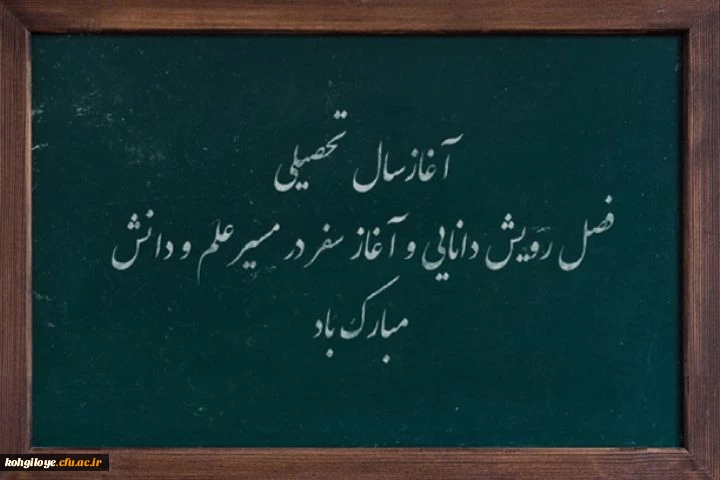 آغاز سال تحصیلی
فصل رویش دانایی و آغاز سفر در مسیر علم و دانش
مبارک باد
kohgiloye.cfu.ac.ir